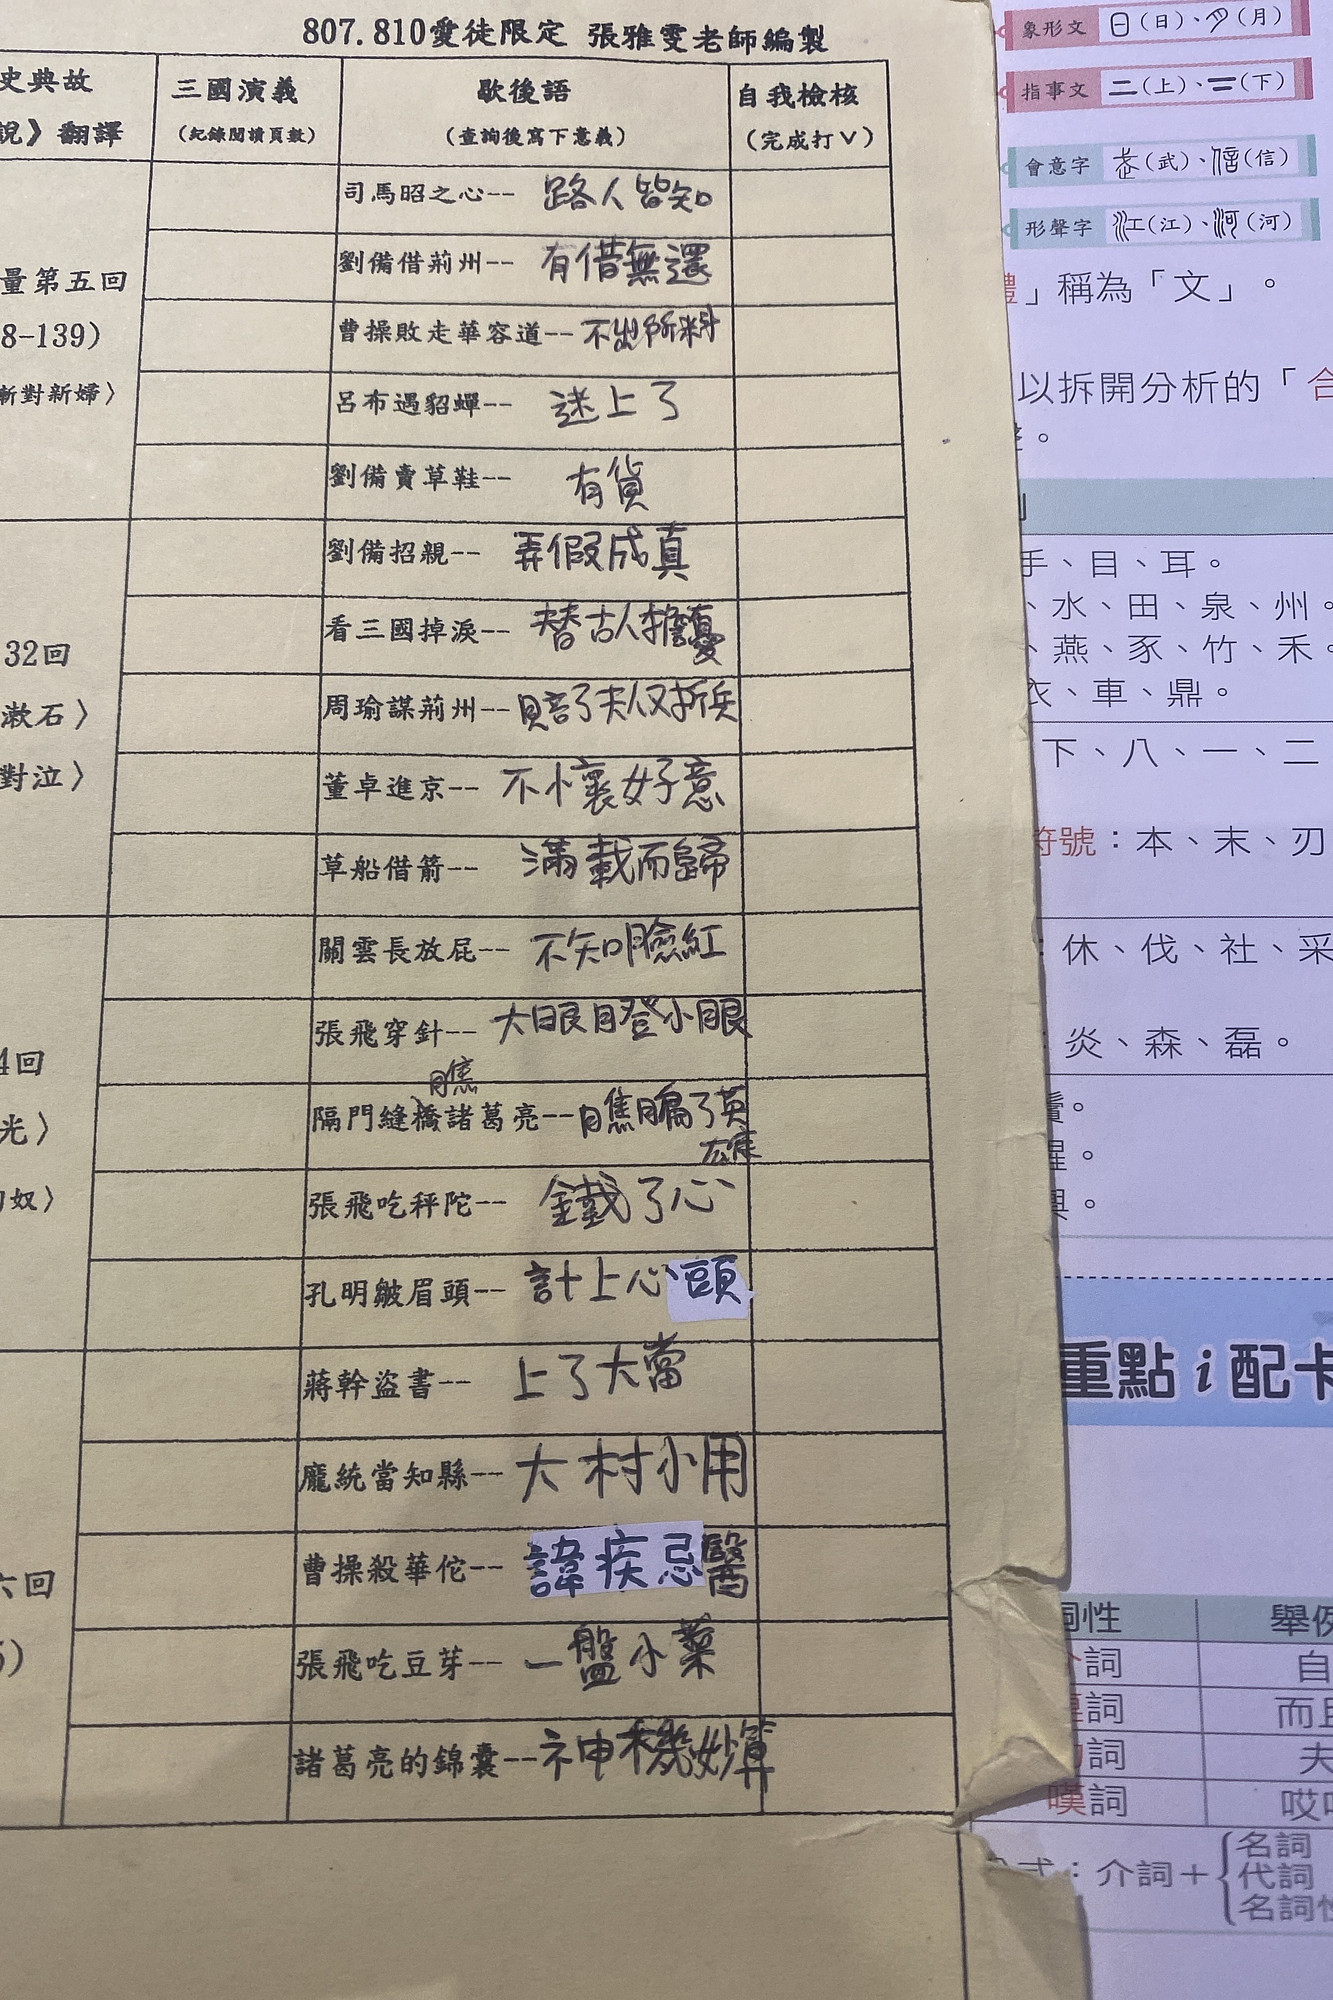 807.810愛徒限定 張雅雯老師編製
史典故
說》翻譯
三國演義
(紀錄閱讀頁數)
歇後語
(查詢後寫下意義)
自我檢核
(完成打V)
司馬昭之心-- 路人皆知
劉備借荊州-- 有借無還
曹操敗走華容道-- 不出所料
呂布遇貂蟬-- 迷上了
劉備賣草鞋-- 有貨
劉備招親-- 弄假成真
看三國掉淚-- 替古人擔憂
周瑜謀荊州-- 賠了夫人又折兵
董卓進京-- 不懷好意
草船借箭-- 滿載而歸
關雲長放屁-- 不知臉紅
張飛穿針-- 大眼瞪小眼
瞧
隔門縫橋諸葛亮-- 瞧騙了英
雄
張飛吃秤陀-- 鐵了心
孔明皺眉頭-- 計上心頭
蔣幹盜書-- 上了大當
龐統當知縣-- 大材小用
曹操殺華佗-- 諱疾忌醫
張飛吃豆芽-- 一盤小菜
諸葛亮的錦囊-- 神機妙算
量第五回
8-139)
新對新婦〉
32回
漱石〉
對泣〉
4回
光〉
奴〉
六回
5)
象形文 日(日)、月(月)
指事文 二(上)、二(下)
會意字 武(武)、信(信)
形聲字 江(江)、河(河)
體」稱為「文」。
以拆開分析的「合
。
手、目、耳。
、水、田、泉、州。
、燕、豕、竹、禾。
衣、車、鼎。
下、八、一、二
符號：本、末、刃
：休、伐、社、采
：炎、森、磊。
。
。
。
重點i配卡
詞性 舉例
介詞 自
連詞 而且
助詞 夫
嘆詞 哎
式：介詞+
名詞
代詞
名詞性